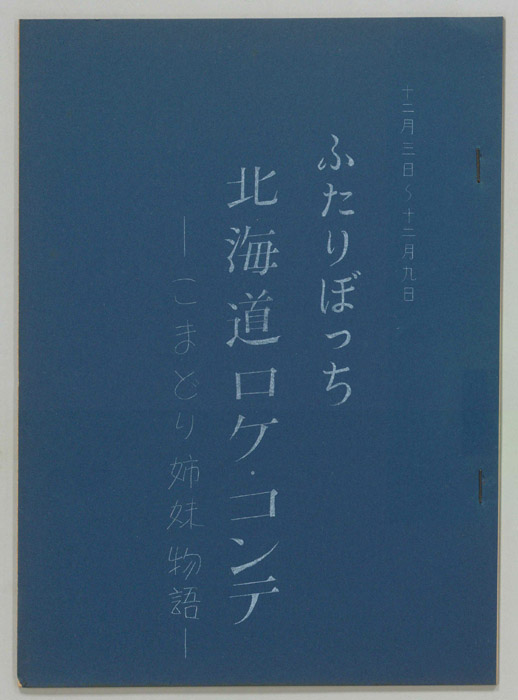 十二月三日〜十二月九日
ふたりぼっち
北海道ロケ・コンテ
―こまどり姉妹物語―